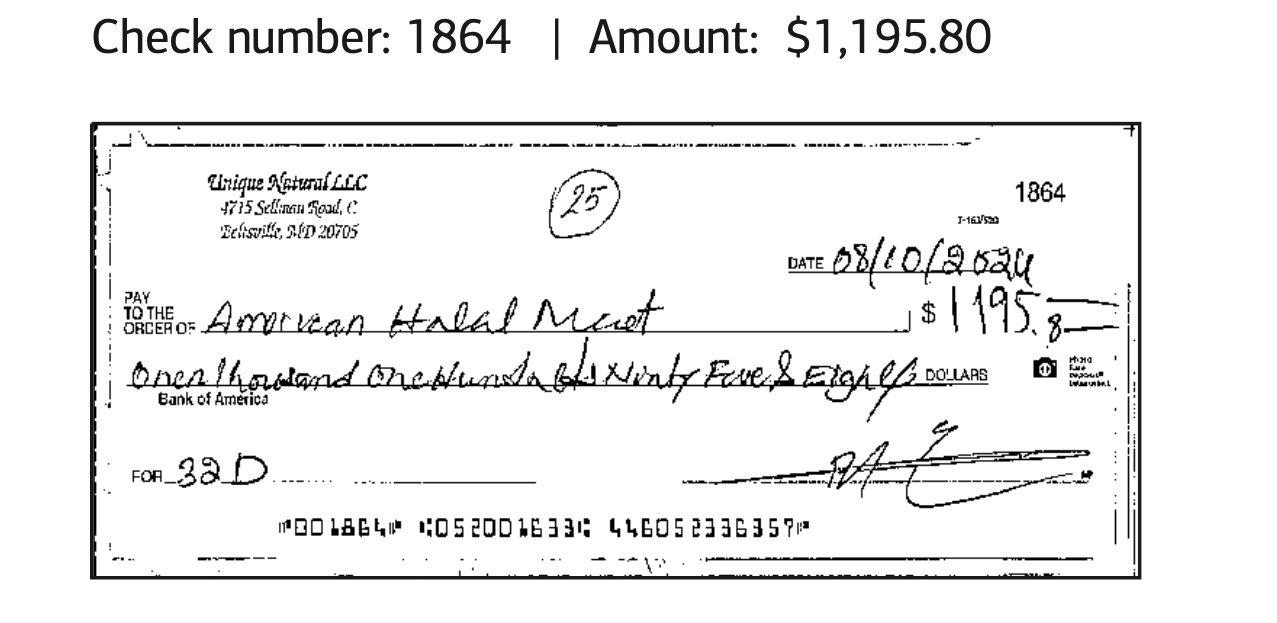 Check number: 1864 | Amount: $1,195.80
Unique Natural LLC
4715 Sellman Road, C
Beltsville, MD 20705
25
1864
7-163/520
DATE 08/10/2024
PAY
TO THE
ORDER OF American Halal Meat
$ 1195.8
One Thousand One Hundred Ninty Five & Eighty DOLLARS
Bank of America
FOR 32 D
⑈001864⑈ ⑆052001633⑆ 446052336357⑈